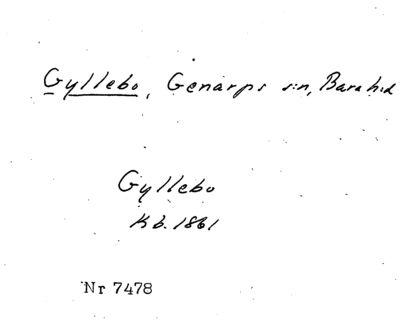 Gyllebo, Genarps sn, Bara hd
Gyllebo
Kb. 1861
Nr 7478